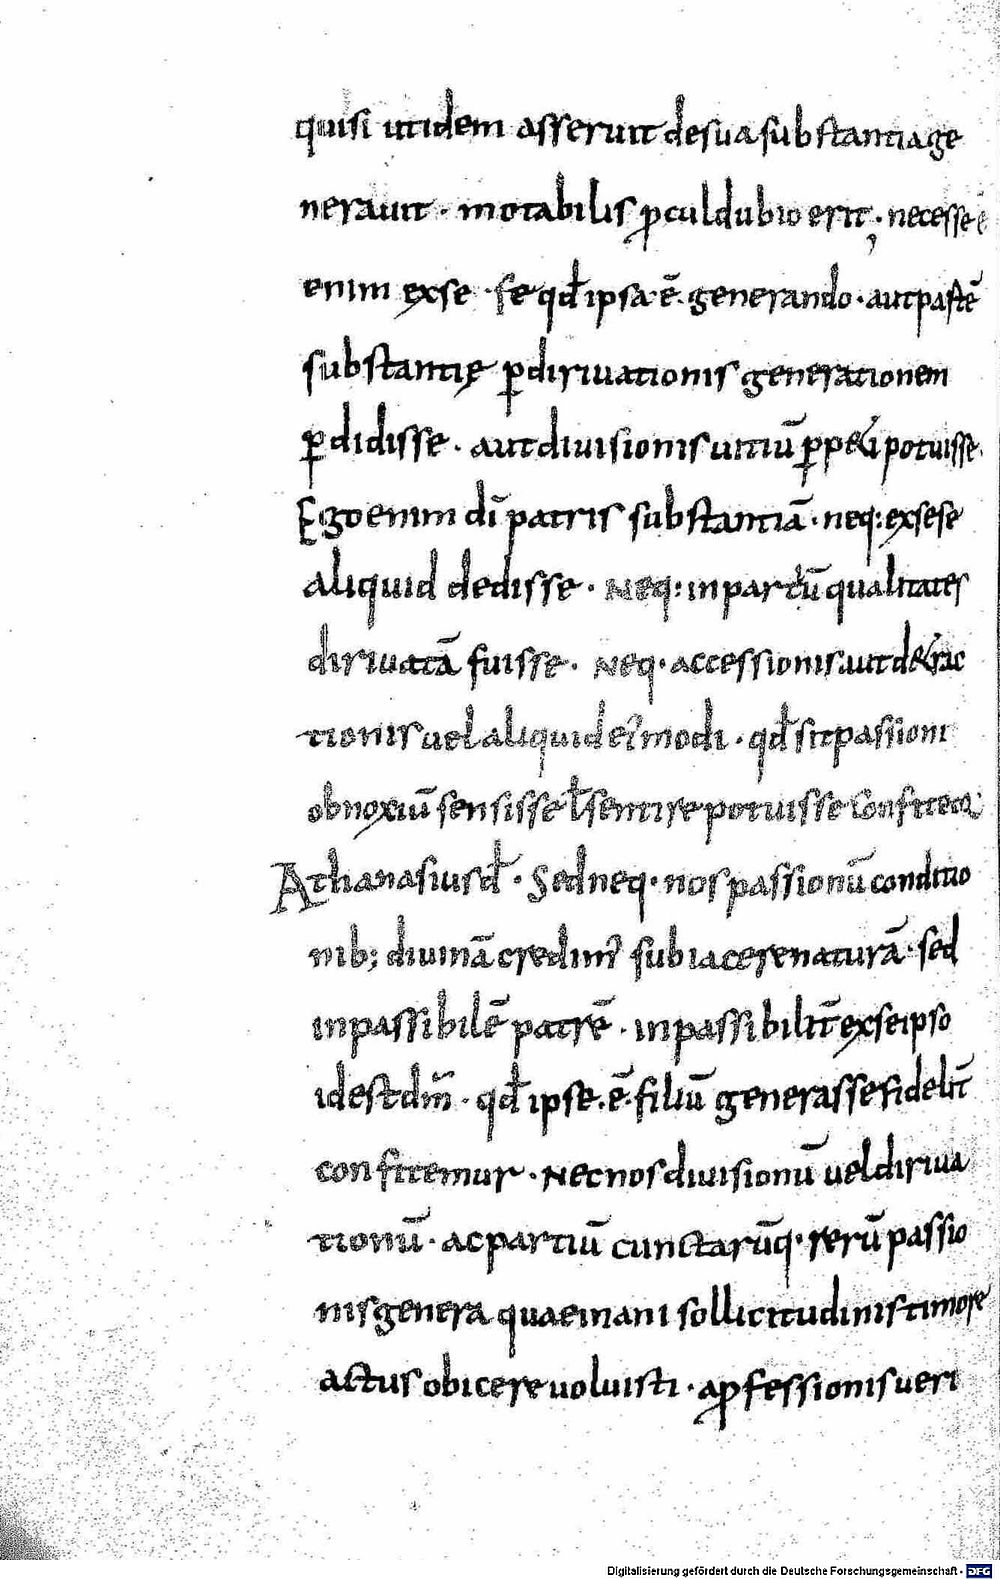 quisi utidem asseruit desua substantiage
nerauit · motabilis ꝓculdubio erit · necesse ē
enim exse · se qđ ipsa ē · generando · aut passē
substantię ꝑdiriuationis generationem
ꝑdidisse · aut diuisionis uitiū ꝑpeti potuisse ·
Ego enim dī patris substantiā · neq: exsese
aliquid dedisse · Neq: inpartiū qualitates
diriuatā fuisse · Neq · accessionis aut detrac
tionis uel aliquid ei᾽modi · qđ sit passioni
obnoxiū sensisse ł sentire potuisse Confiteor
Athanasius đ · Sed neq · nos passionū conditio
nib; diuinā credim᾽ subiacere naturā · sed
inpassibilē patrē · inpassibilit̄ exseipso
idest dm̄ · qđ ipse · ē · filiū generasse fidelit̄
confitemur · Nec nos diuisionū uel diriua
tionū · ac partiū cunctarūq · rerū passio
nis genera quae inani sollicitudinis timore
actus obicere uoluisti · a ꝓfessionis ueri
Digitalisierung gefördert durch die Deutsche Forschungsgemeinschaft - DFG